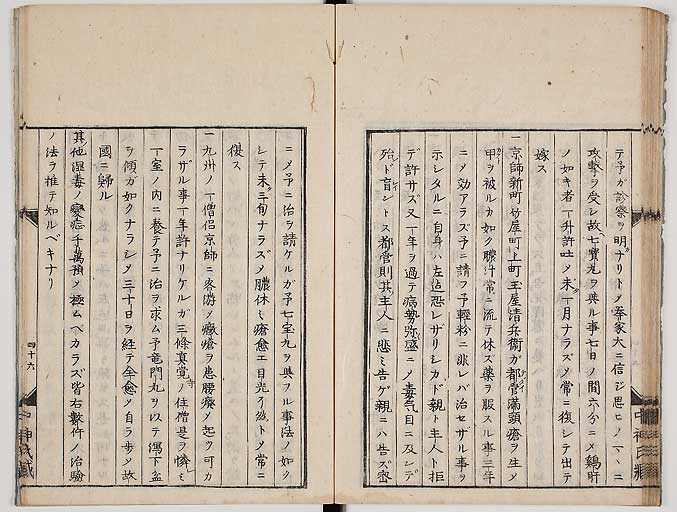 テ予ガ診察ヲ明ナリトメ拳家大ニ信ジ思ヒノマヽニ
攻撃ヲ受レ故七宝丸ヲ與ル事七日ノ間六分ニメ鶏肝
ノ如キ者一升許吐ヌ未一月ナラズメ常ニ復シテ出テ
嫁ス
一京師新町竹屋町上町玉屋清兵衛ガ都管満頭瘡ヲ生メ
甲ヲ被ルカ如ク膿汁常ニ流テ休ズ薬ヲ服スル事三年
ニメ効アラズ予ニ請フ予軽粉ニ非レバ治セザル事ヲ
示レタルニ自身ハ左迄恐レザリシカド親ト主人ト拒
デ許サズ又一年ヲ過テ病勢弥盛ニメ毒気目ニ及シデ
殆ド盲ントス都管則其主人ニ悲ミ告ゲ親ニハ告ズ密
ニメ予ニ治ヲ請ケルガ予七宝丸ヲ與フル事法ノ如ク
レテ未二旬ナラズメ膿休ミ瘡愈エ目光リ 故トメ常ニ
復ス
一九州ノ一僧侶京師ニ客游メ癥瘡ヲ患腰廃メ起ツ可カ
ラザル事一年許ナリケルガ三條真覚寺ノ住僧是ヲ憐ミ
一室ノ内ニ養テ予ニ治ヲ求ム予竜門丸ヲ以テ瀉下盆
ヲ傾ガ如クナラシメ三十日ヲ経テ全愈メ自ラ歩メ故
國ニ歸ル
其他湿毒ノ變態千萬預メ極ムベカラズ皆右数件ノ治驗
ノ法ヲ推テ知ルベキナリ
四十六
中神氏藏
中神氏藏